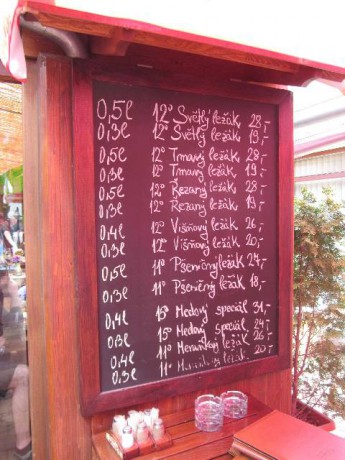 0,5ℓ 12° Světlý ležák 28,-
0,3ℓ 12° Světlý ležák 19,-
0,5ℓ 12° Tmavý ležák 28,-
0,3ℓ 12° Tmavý ležák 19,-
0,5ℓ 12° Řezaný ležák 28,-
0,3ℓ 12° Řezaný ležák 19,-
0,4ℓ 12° Višňový ležák 26,-
0,3ℓ 12° Višňový ležák 20,-
0,5ℓ 11° Pšeničný ležák 24,-
0,3ℓ 11° Pšeničný ležák 18,-
0,4ℓ 15° Medový speciál 31,-
0,3ℓ 15° Medový speciál 24,-
0,4ℓ 11° Meruňkový ležák 26,-
0,3ℓ 11° ležák 20,-